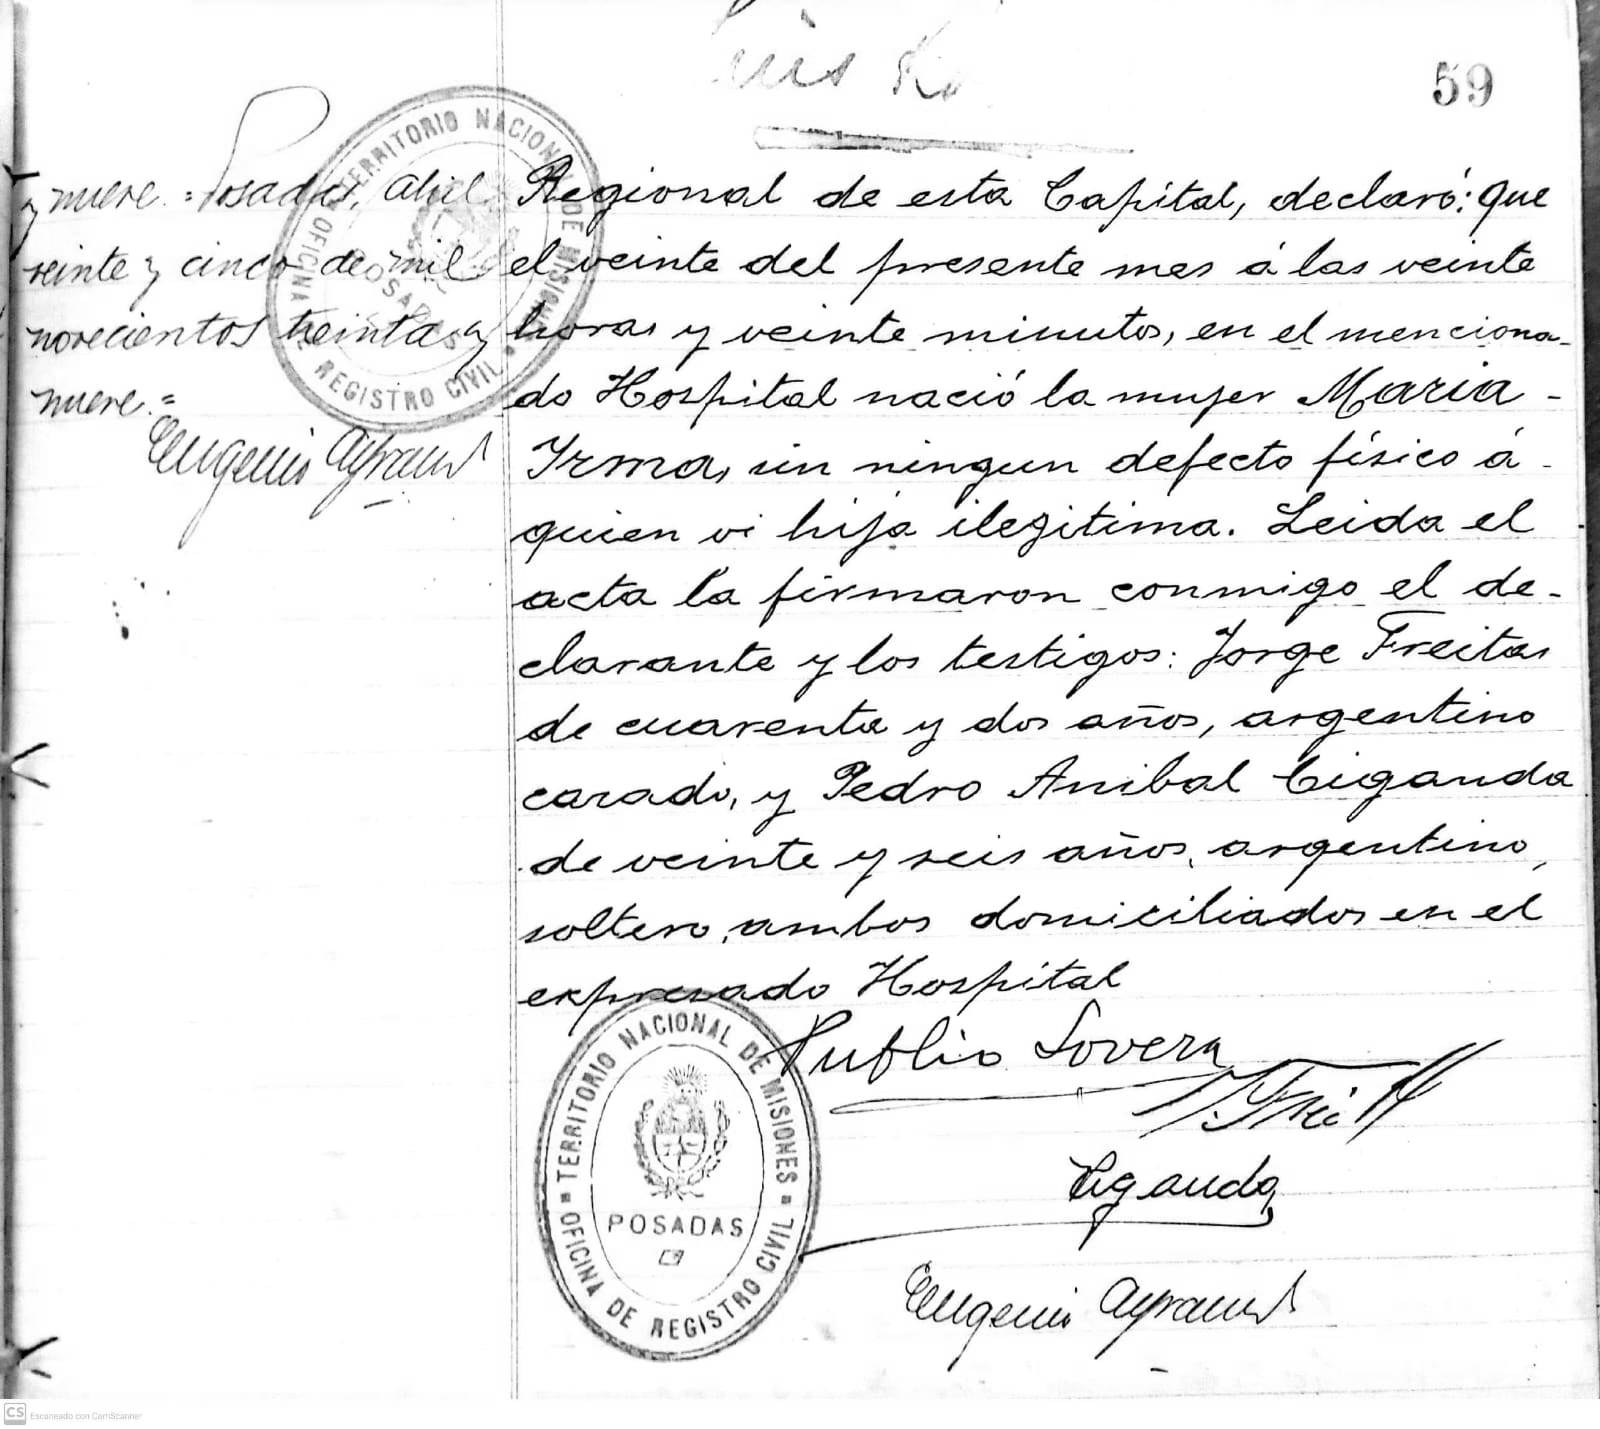 59
y nueve = Posadas, Abril
veinte y cinco de mil
novecientos treinta y
nueve.=
Eugenio Ayrault
TERRITORIO NACIONAL DE MISIONES
OFICINA DE REGISTRO CIVIL
POSADAS
Regional de esta Capital, declaró: que
el veinte del presente mes á las veinte
horas y veinte minutos, en el menciona-
do Hospital nació la mujer Maria -
Irma, sin ningun defecto físico á -
quien vi hija ilegitima. Leida el
acta la firmaron conmigo el de-
clarante y los testigos: Jorge Freitas
de cuarenta y dos años, argentino
casado, y Pedro Anibal Ciganda
de veinte y seis años, argentino,
soltero, ambos domiciliados en el
expresado Hospital
Publio Lovera
Ciganda
Eugenio Ayrault
TERRITORIO NACIONAL DE MISIONES
POSADAS
OFICINA DE REGISTRO CIVIL
CS Escaneado con CamScanner